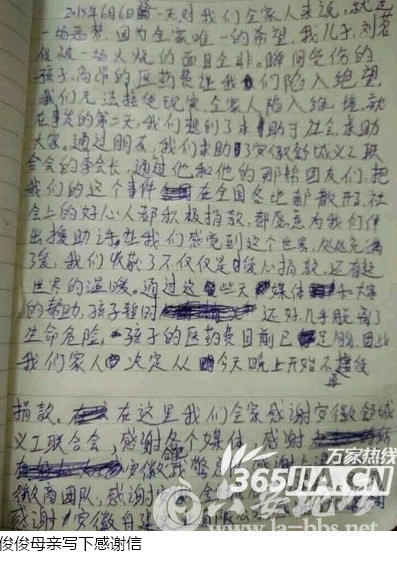 2015年6月6日这一天对我们全家人来说,就是
一场恶梦。因为全家唯一的希望,我儿子,刘若
俊被一场火烧的面目全非。瞬间受伤的
孩子,高昂的医药费让我们陷入绝望。
我们无法接受现实,全家人陷入绝境,就
在事发的第二天,我们想到了求助于社会,求助
大家。通过朋友,我们求助了安徽舒城义工联
合会的李会长,通过他和他的那帮团友们,把
我们的这个事件在全国各地都散开了,社
会上的好心人都积极捐款,都愿意为我们伸
出援助,让我们感觉到这个世界,处处充满
了爱,我们收获了不仅仅是爱心捐款,还有这
世界的温暖。通过这些天媒体和大家
的帮助,孩子暂时还好,几乎脱离了
生命危险,孩子的医药费目前已足够,因此
我们家人决定从今天晚上开始不接受
捐款。在这里我们全家感谢安徽舒城
义工联合会,感谢各个媒体,感谢
安徽武警,感谢
徽商团队,感谢
感谢安徽舟建
万家热线
365JIA.CN
六安论坛
www.la-bbs.net
俊俊母亲写下感谢信